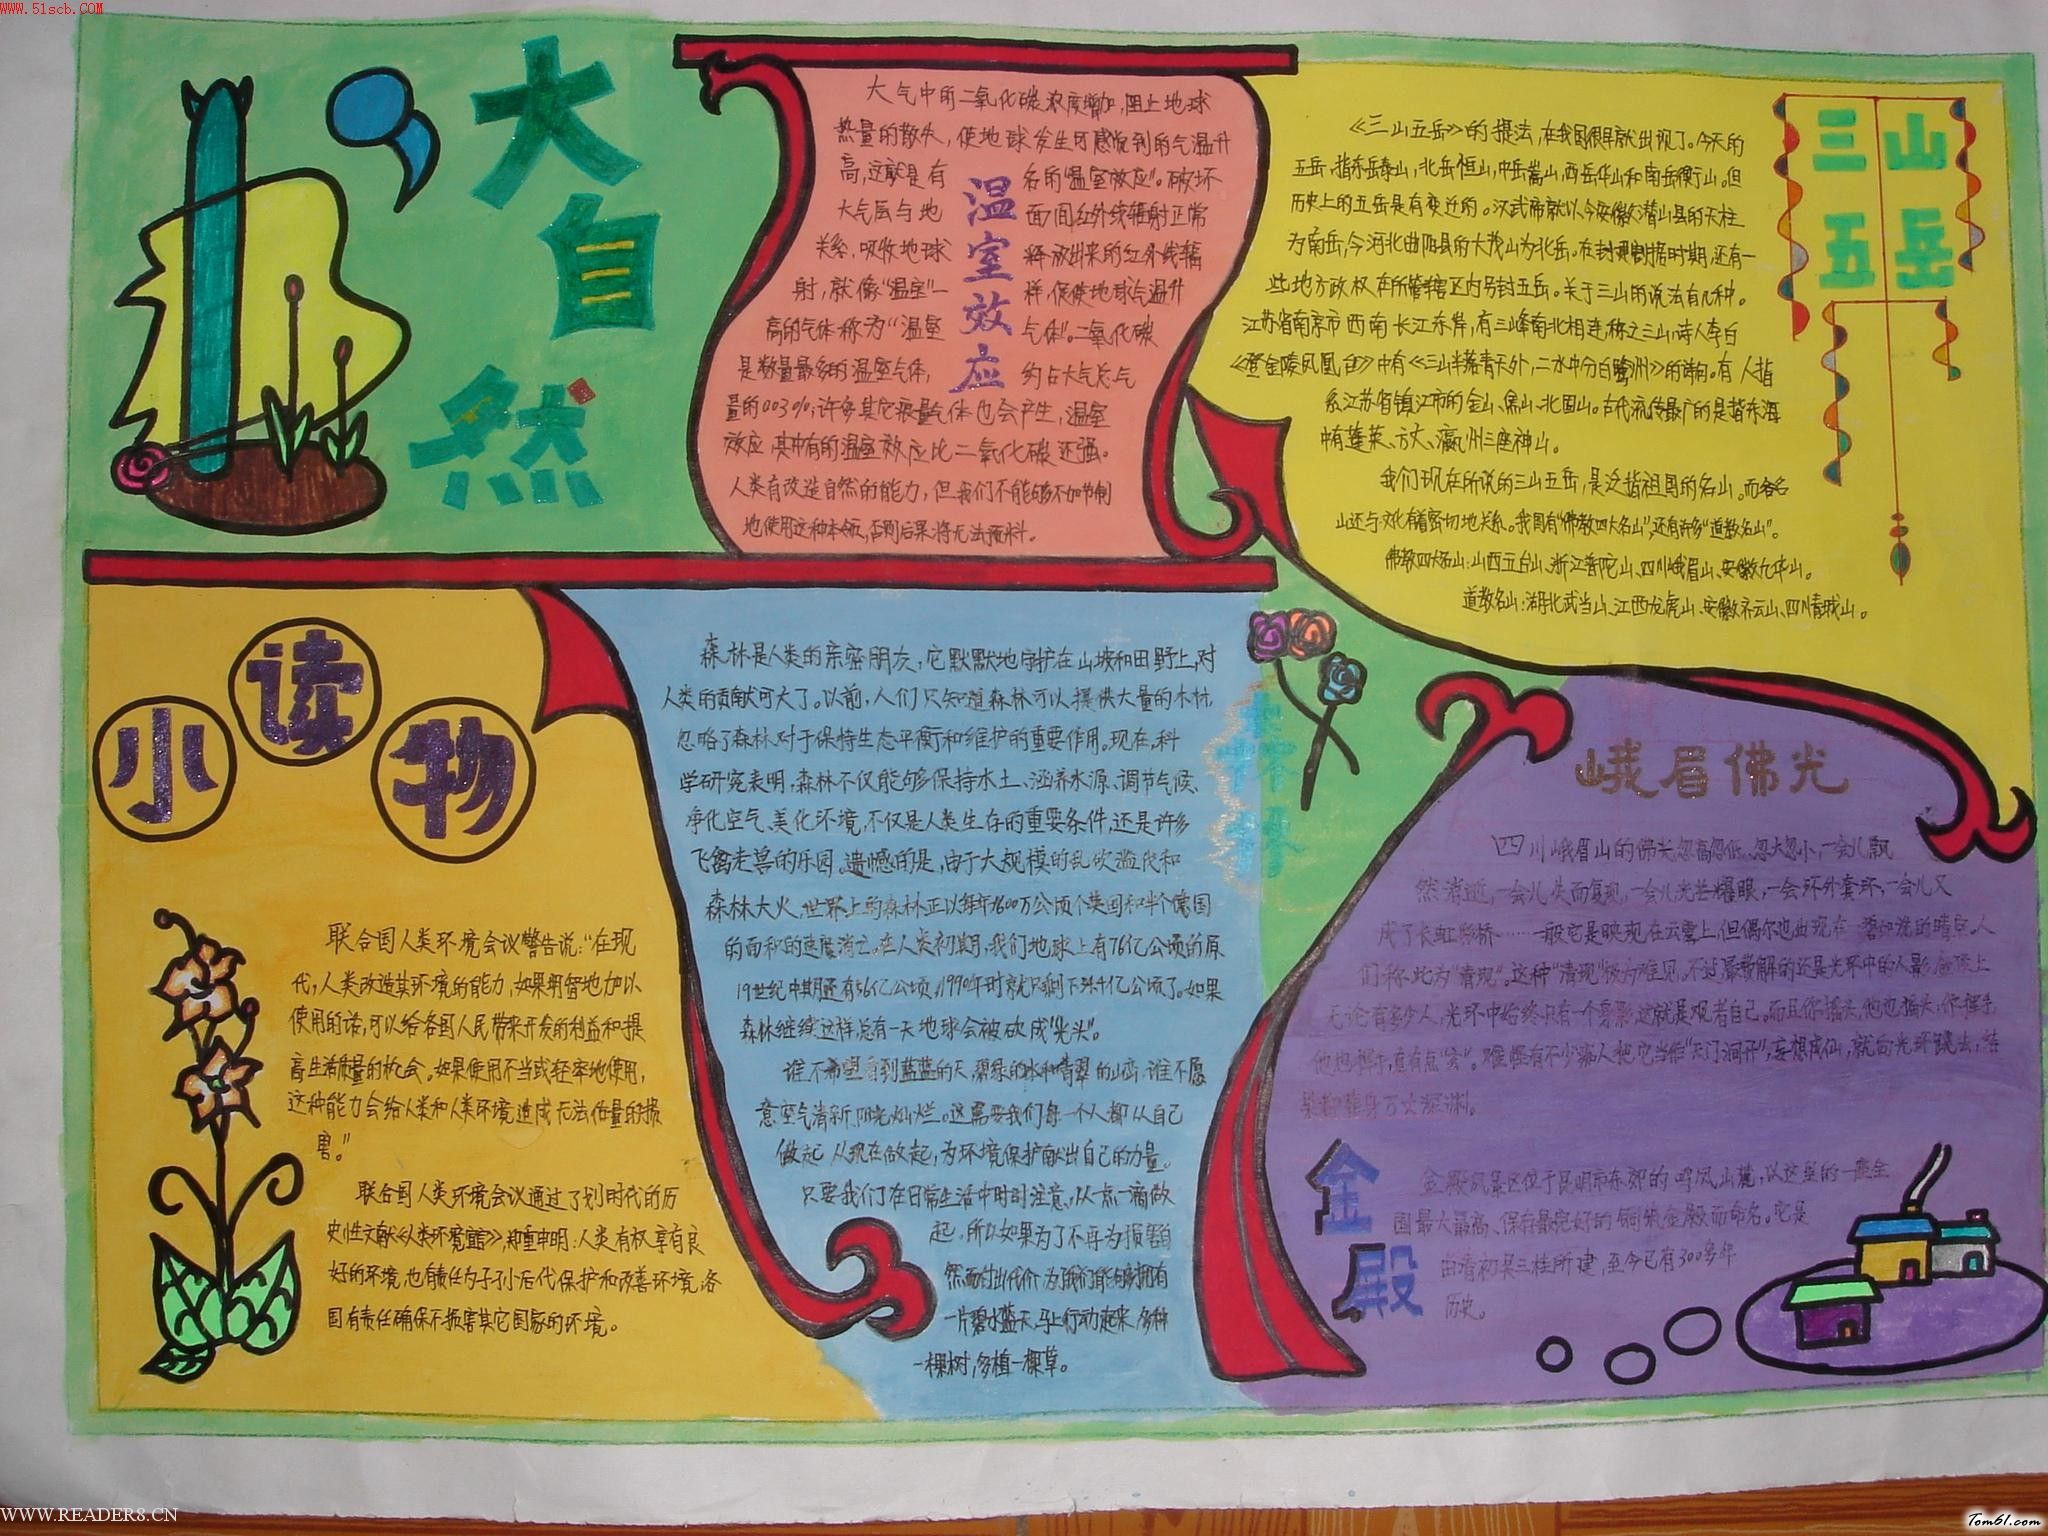 www.51scb.com
大自然
大气中的二氧化碳浓度增加,阻止地球
热量的散失,使地球发生可感觉到的气温升
高,这就是有名的"温室效应"。破坏
大气层与地面间红外线辐射正常
关系,吸收地球释放出来的红外线辐
射,就像"温室"一样,促使地球气温升
高的气体称为"温室气体"。二氧化碳
是数量最多的温室气体,约占大气总气
量的003%,许多其它痕量气体也会产生,温室
效应,其中有的温室效应比二氧化碳还强。
人类有改造自然的能力,但我们不能够不加节制
地使用这种本领,否则后果将无法预料。
温室效应
三山
五岳
《三山五岳》的提法,在我国很早就出现了。今天的
五岳,指东岳泰山,北岳恒山,中岳嵩山,西岳华山和南岳衡山。但
历史上的五岳是有变迁的。汉武帝就以今安徽潜山县的天柱
为南岳,今河北曲阳县的大茂山为北岳。在封建割据时期,还有一
些地方政权在所管辖区内另封五岳。关于三山的说法有几种。
江苏省南京市西南长江东岸,有三峰南北相连,称之三山,诗人李白
《登金陵凤凰台》中有《三山半落青天外,二水中分白鹭洲》的诗句。有人指
系江苏省镇江市的金山、焦山、北固山。古代流传最广的是指东海
中有蓬莱、方丈、瀛州三座神山。
我们现在所说的三山五岳,是泛指祖国的名山。而各名
山还与文化有着密切地关系。我国有"佛教四大名山",还有许多"道教名山"。
佛教四大名山:山西五台山、浙江普陀山、四川峨眉山、安徽九华山。
道教名山:湖北武当山、江西龙虎山、安徽齐云山、四川青城山。
小读物
联合国人类环境会议警告说:"在现
代,人类改造其环境的能力,如果明智地加以
使用的话,可以给各国人民带来开发的利益和提
高生活质量的机会。如果使用不当或轻率地使用,
这种能力会给人类和人类环境造成无法估量的损
害。"
联合国人类环境会议通过了划时代的历
史性文献《人类环境宣言》,郑重申明:人类有权享有良
好的环境,也有责任为子子孙后代保护和改善环境,各
国有责任确保不损害其它国家的环境。
森林是人类的亲密朋友,它默默地守护在山坡和田野上,对
人类的贡献可大了。以前,人们只知道森林可以提供大量的木材,
忽略了森林对于保持生态平衡和维护的重要作用。现在,科
学研究表明,森林不仅能够保持水土、涵养水源、调节气候、
净化空气、美化环境,不仅是人类生存的重要条件,还是许多
飞禽走兽的乐园。遗憾的是,由于大规模的乱砍滥伐和
森林大火,世界上的森林正以每年1600万公顷个英国和半个德国
的面积的速度消亡。在人类初期,我们地球上有76亿公顷的原
19世纪中期还有56亿公顷,1990年时就只剩下34亿公顷了。如果
森林继续这样,总有一天地球会被砍成"光头"。
谁不希望看到蓝蓝的天,碧绿的水和青翠的山峦,谁不愿
意空气清新,阳光灿烂。这需要我们每一个人都从自己
做起,从现在做起,为环境保护献出自己的力量。
只要我们在日常生活中时刻注意,从一点一滴做
起,所以如果为了不再为损害自
然而付出代价,为了我们能够拥有
一片碧水蓝天,马上行动起来,多种
一棵树,多植一棵草。
峨眉佛光
四川峨眉山的佛光忽高忽低、忽大忽小,一会儿飘
然消逝,一会儿失而复现,一会儿光芒耀眼,一会环外套环,一会儿又
成了长虹彩桥……一般它是映现在云雾上,但偶尔也出现在碧如洗的晴空。人
们称此为"清现"。这种"清现"极为难见。不过最费解的还是光环中的人影,金顶上
无论有多少人,光环中始终只有一个身影,这就是观者自己。而且你摇头,他也摇头,你挥手,
他也挥手,真有点"玄"。难怪有不少寡人把它当作"天门洞开",妄想成仙,就向光环跳去,结
果都葬身万丈深渊。
金殿
金殿风景区位于昆明市东郊的鸣凤山麓,以这里的一座全
国最大最高、保存最完好的铜铸金殿而命名。它是
由清初吴三桂所建,至今已有300多年
历史。
WWW.READER8.CN
Tom61.com